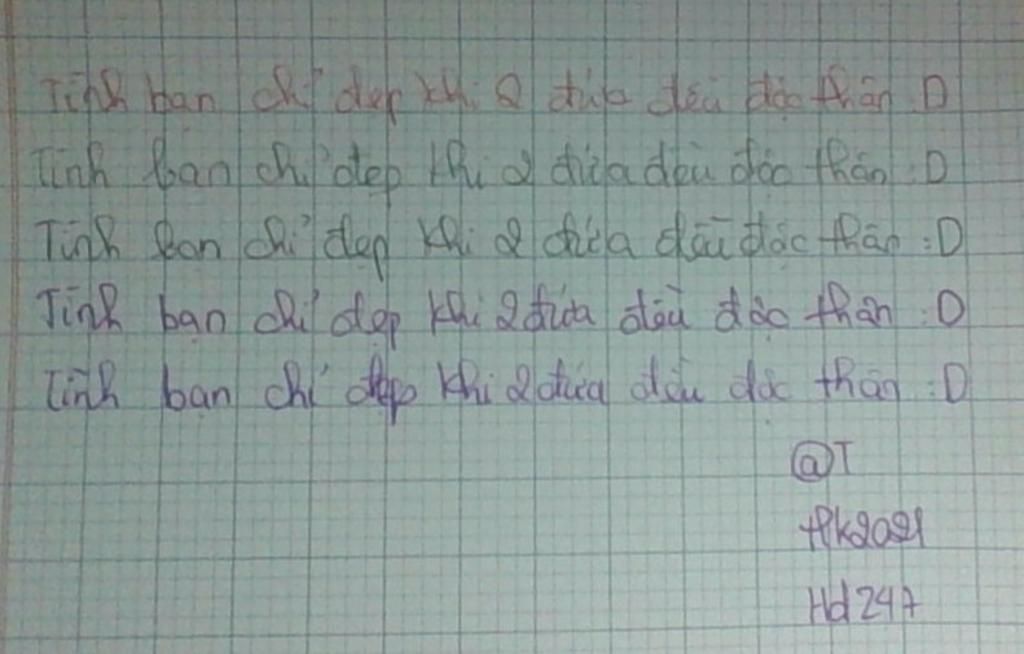 Tình bạn chỉ đẹp khi 2 đứa đều độc thân :D
Tình bạn chỉ đẹp khi 2 đứa đều độc thân :D
Tình bạn chỉ đẹp khi 2 đứa đều độc thân :D
Tình bạn chỉ đẹp khi 2 đứa đều độc thân :D
Tình bạn chỉ đẹp khi 2 đứa đều độc thân :D
@T
Hd247